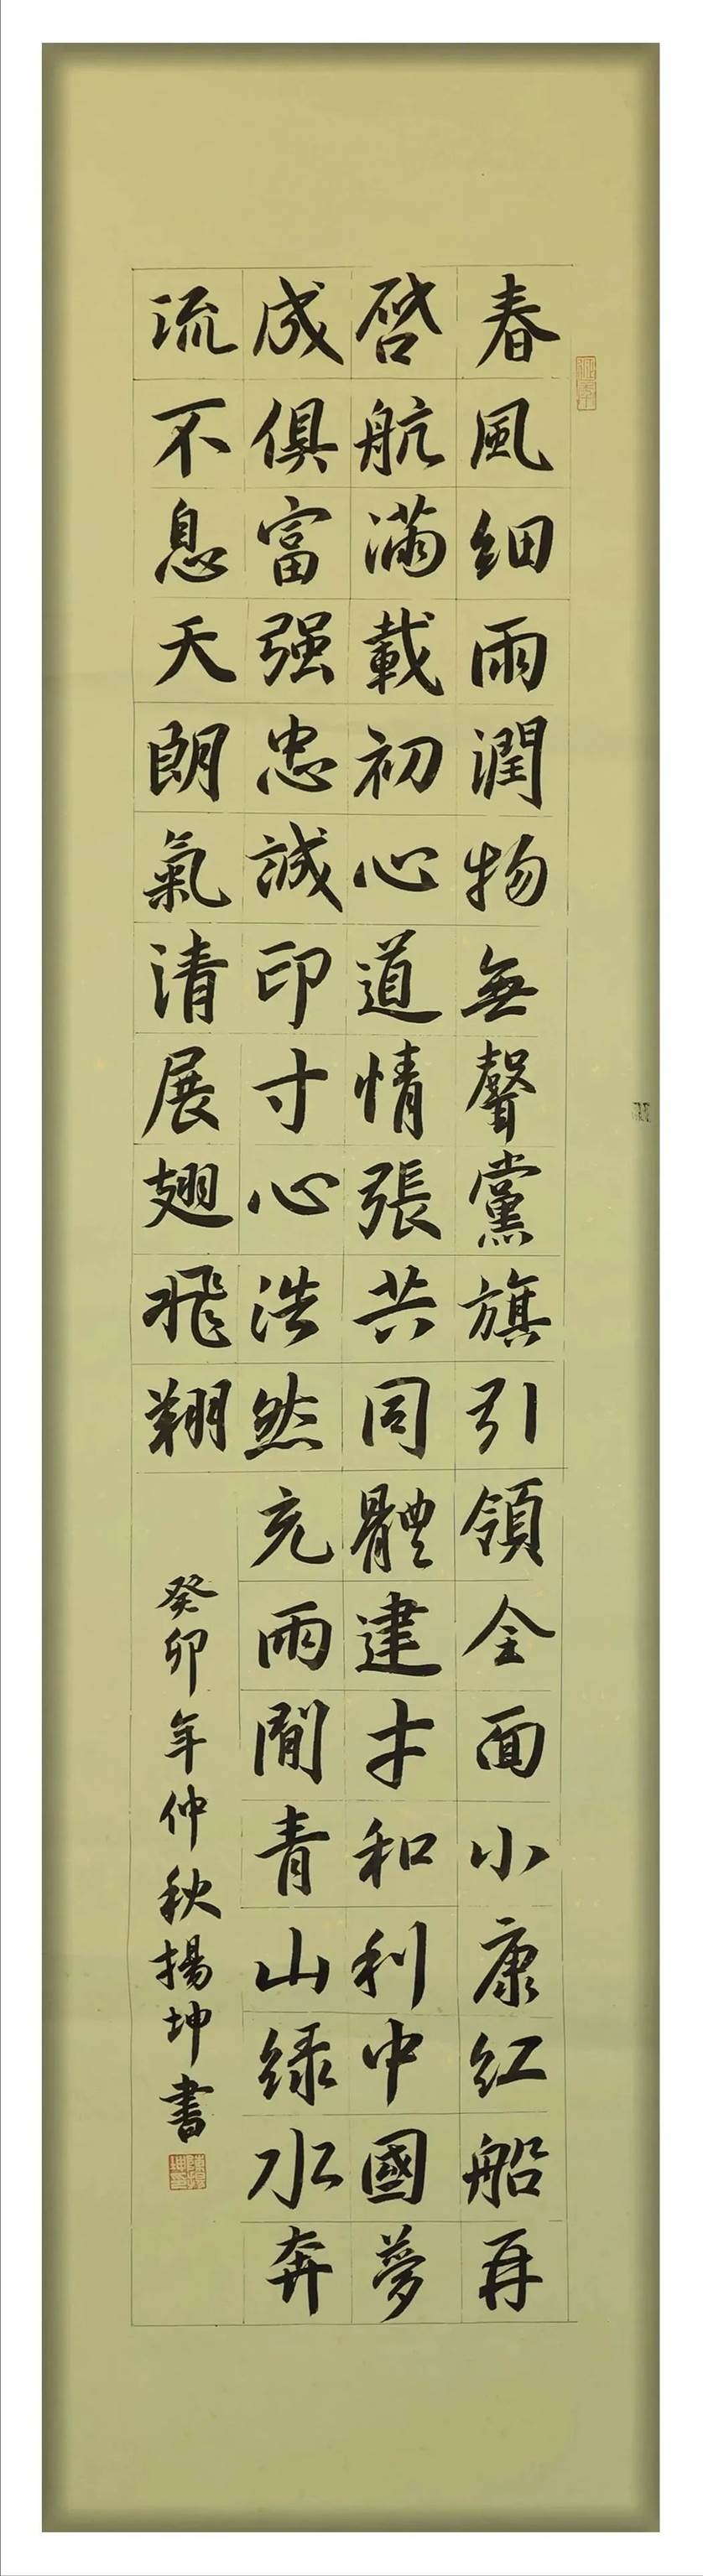 春風细雨潤物無聲黨旗引領全面小康红船再
啓航滿載初心道情張共同體建才和利中國夢
成俱富强忠誠印寸心浩然充兩間青山绿水奔
流不息天朗氣清展翅飛翔
癸卯年仲秋揚坤書